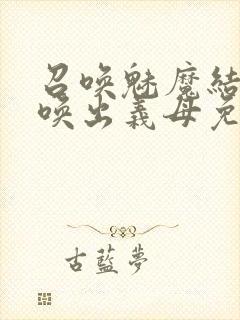 召唤魅魔結
唤出義母免
古藍夢